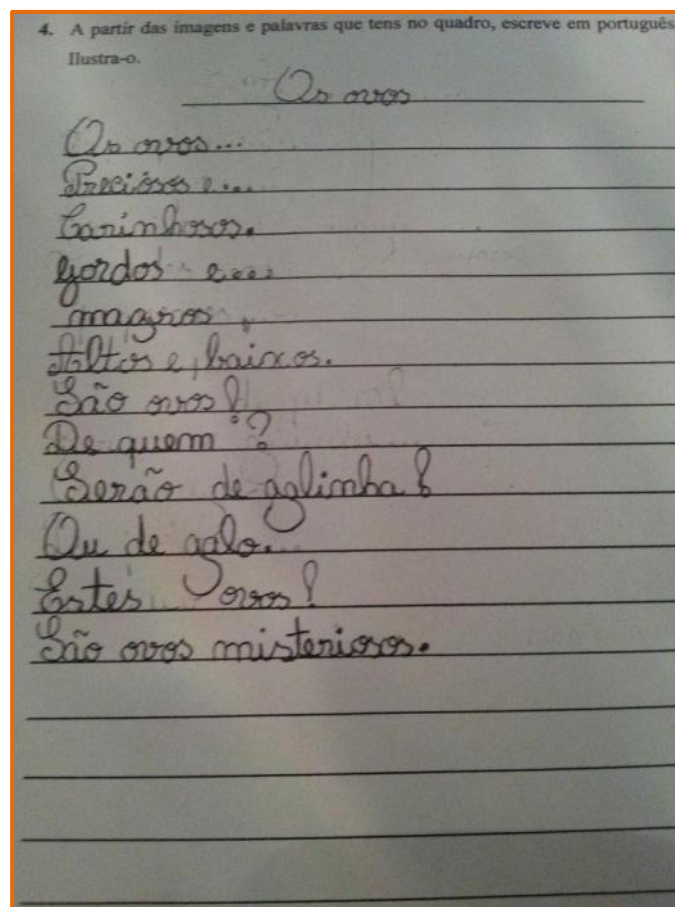 4. A partir das imagens e palavras que tens no quadro, escreve em português
Ilustra-o.
Os ovos
Os ovos...
Preciosos e...
Carinhosos.
Gordos e...
magros,
Altos e, baixos.
São ovos!
De quem?
Serão de aglimha!
Ou de galo.
Estes ovos!
São ovos misteriosos.